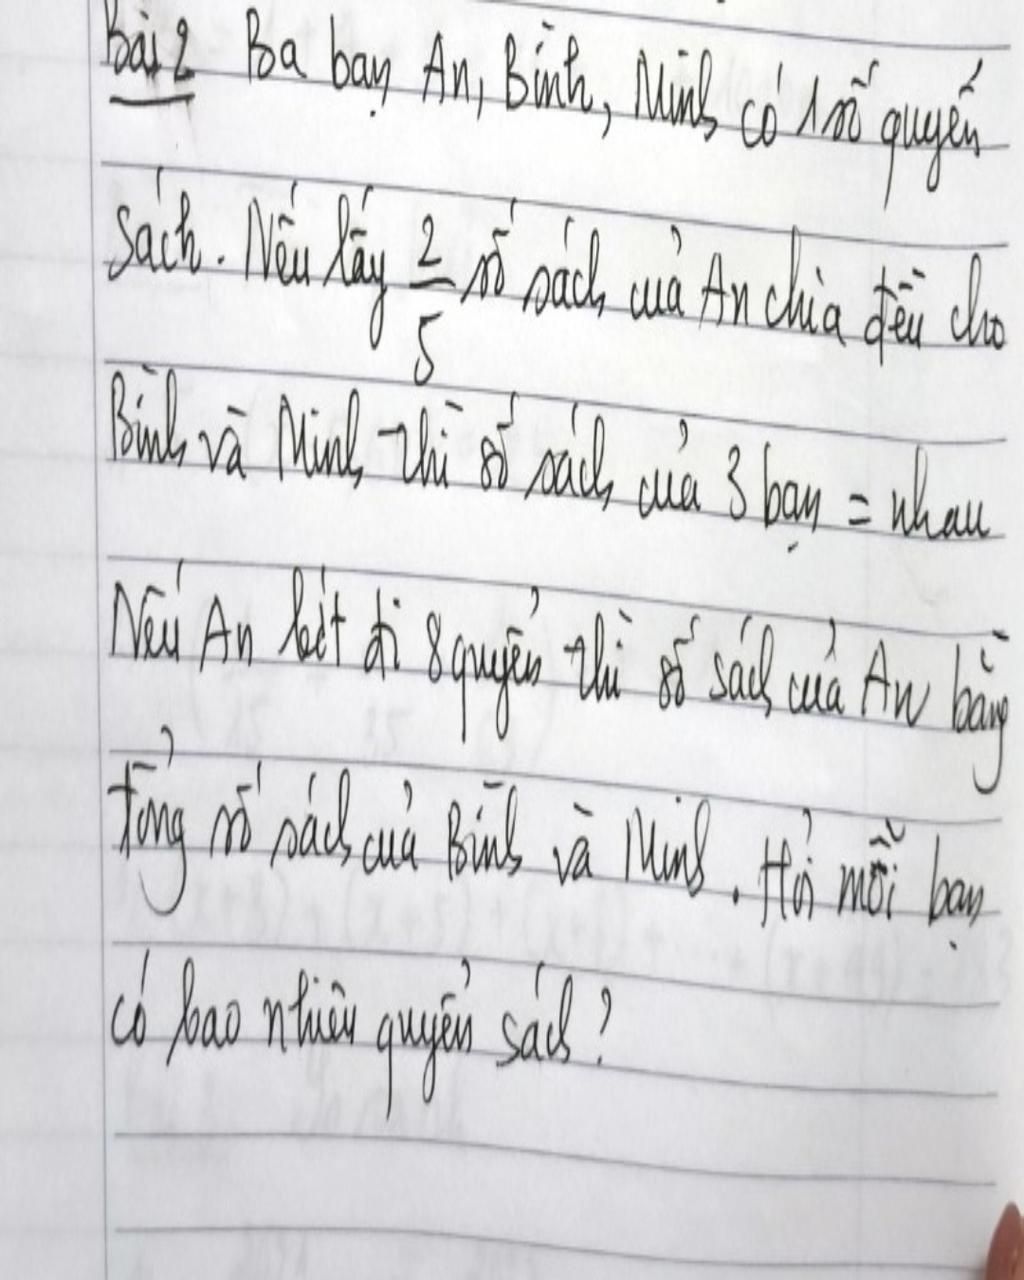 Bài 2 Ba bạn An, Bình, Minh có 1 số quyển
sách. Nếu lấy 2/5 số sách của An chia đều cho
Bình và Minh thì số sách của 3 bạn = nhau
Nếu An bớt đi 8 quyển thì số sách của An bằng
tổng số sách của Bình và Minh. Hỏi mỗi bạn
có bao nhiêu quyển sách?